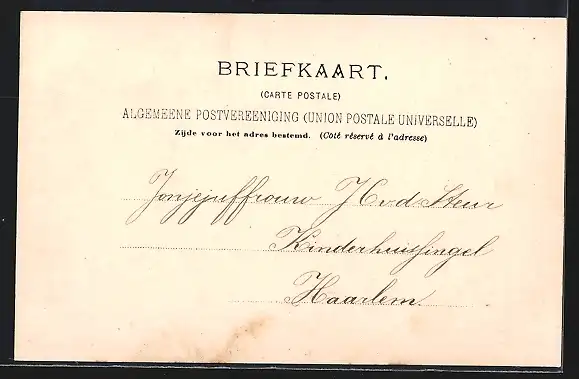 BRIEFKAART.
(CARTE POSTALE)
ALGEMEENE POSTVEREENIGING (UNION POSTALE UNIVERSELLE)
Zijde voor het adres bestemd. (Côté réservé à l'adresse)
Jonjejuffrouw H v. d. Steur
Kinderhuissingel
Haarlem.